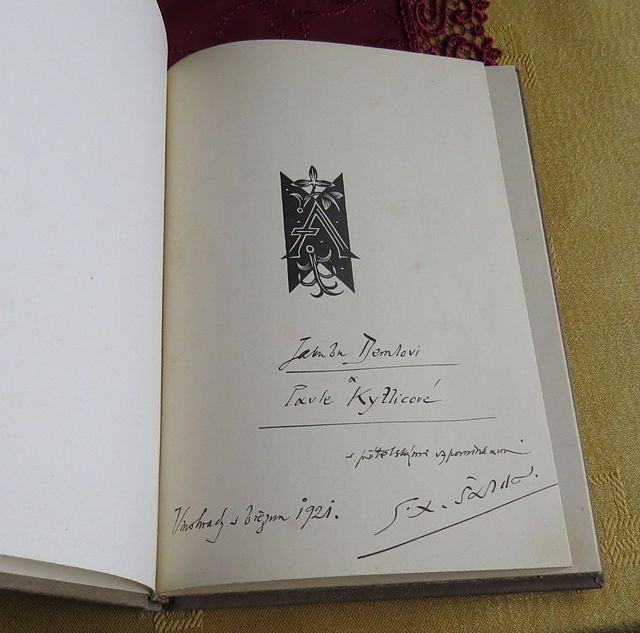 A
Jakubu Demlovi
a
Pavle Kytlicové
s přátelskými vzpomínkami
Vinohrady v březnu 1921.
F. X. Šalda.